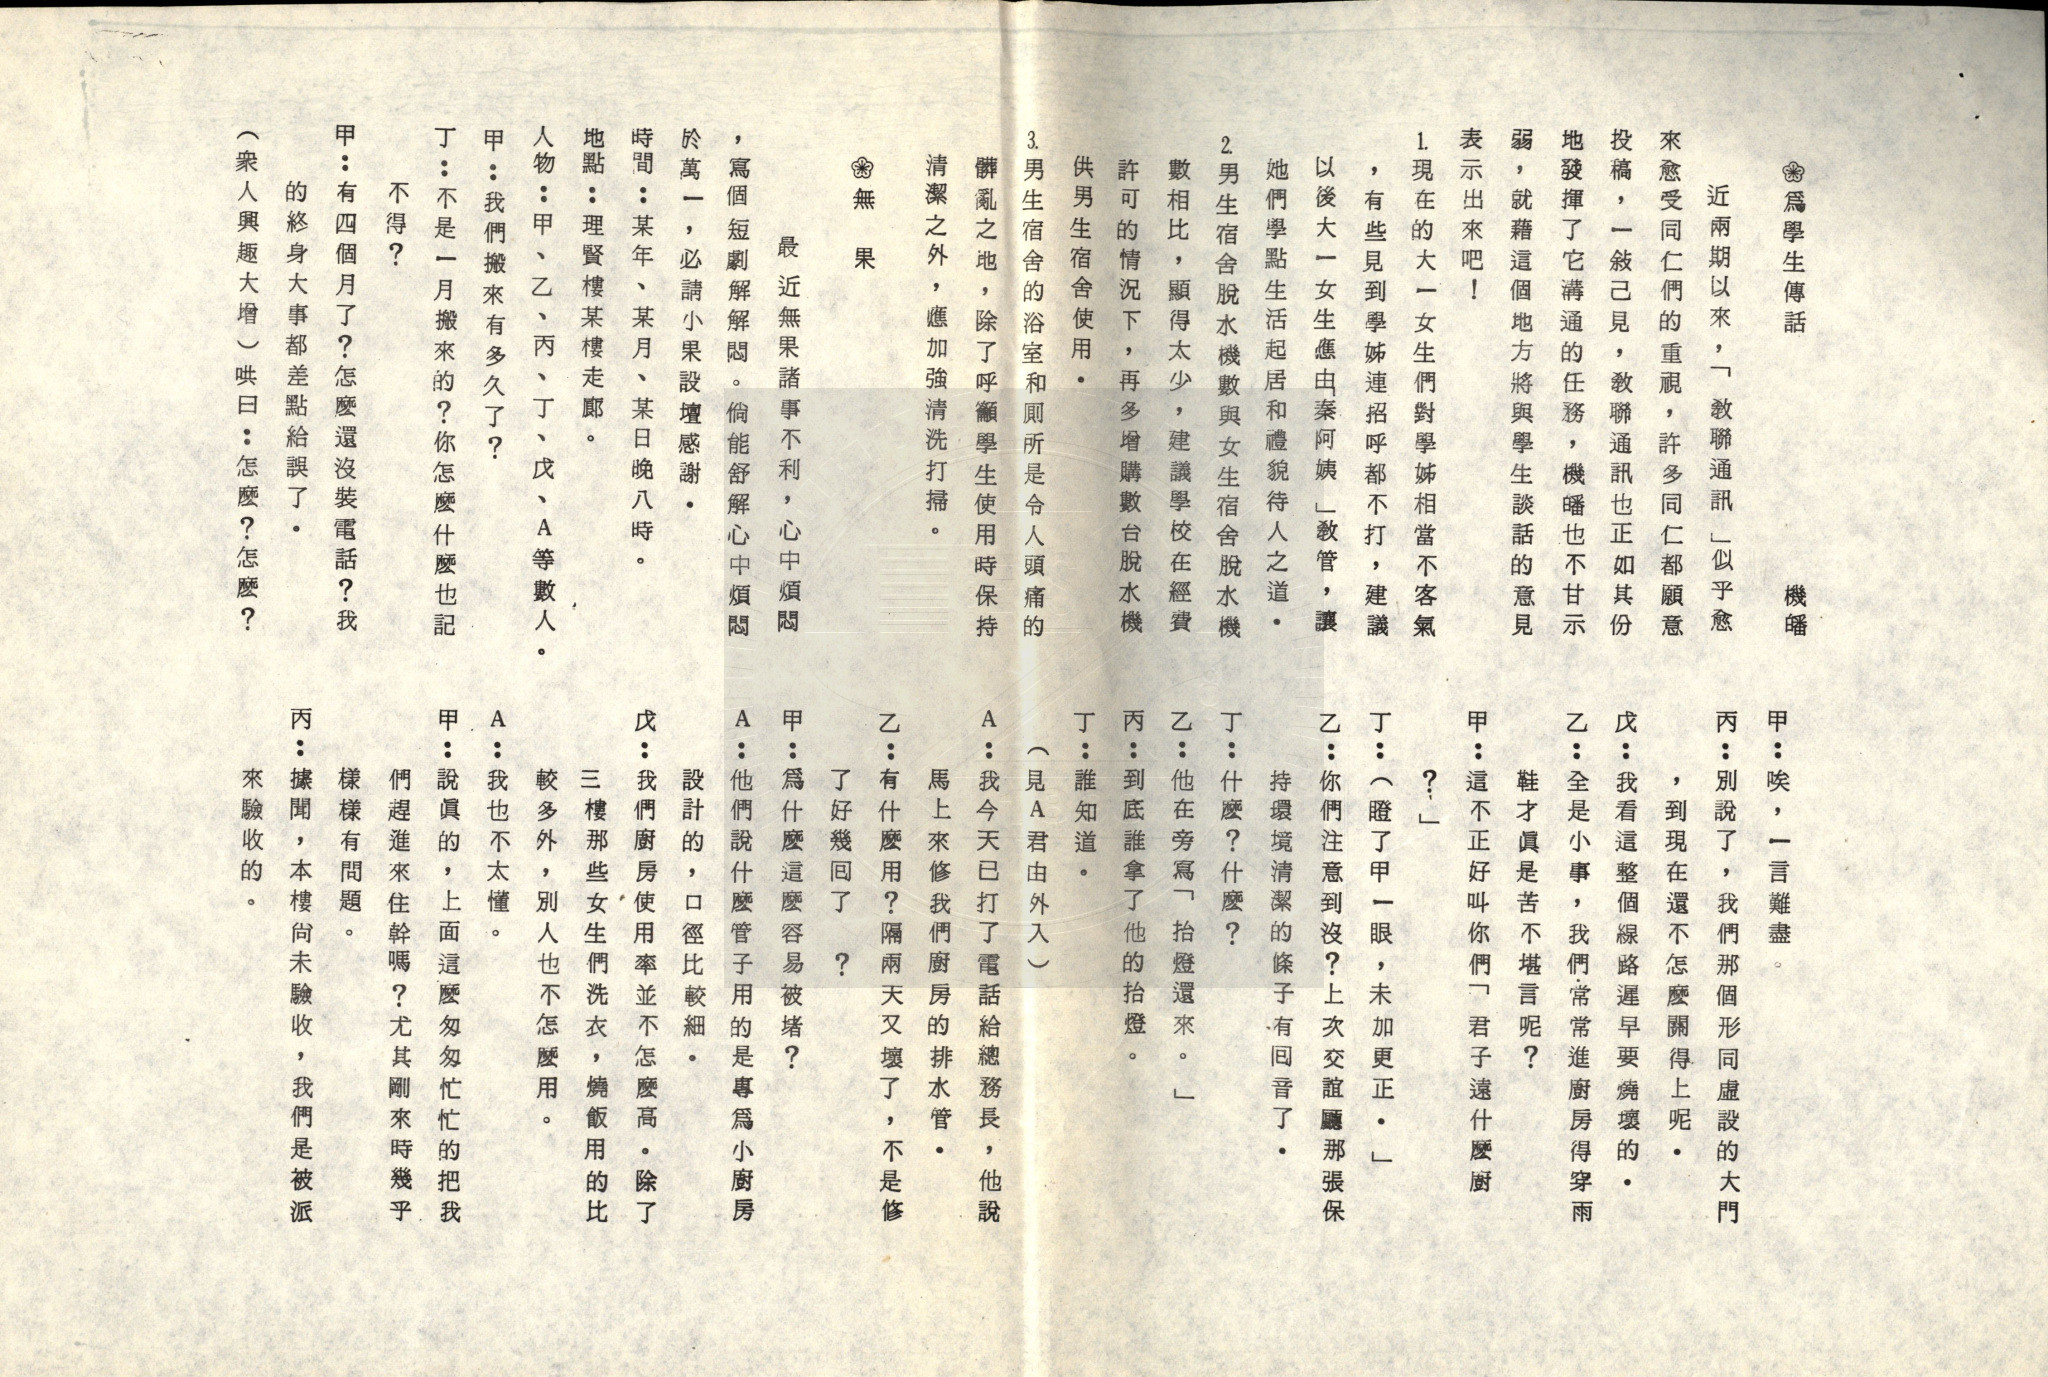 ❀爲學生傳話　機皤
近兩期以來，「教聯通訊」似乎愈
來愈受同仁們的重視，許多同仁都願意
投稿，一敍己見，教聯通訊也正如其份
地發揮了它溝通的任務，機皤也不甘示
弱，就藉這個地方將與學生談話的意見
表示出來吧！
1.現在的大一女生們對學姊相當不客氣
，有些見到學姊連招呼都不打，建議
以後大一女生應由「秦阿姨」教管，讓
她們學點生活起居和禮貌待人之道．
2.男生宿舍脫水機數與女生宿舍脫水機
數相比，顯得太少，建議學校在經費
許可的情況下，再多增購數台脫水機
供男生宿舍使用．
3.男生宿舍的浴室和厠所是令人頭痛的
髒亂之地，除了呼籲學生使用時保持
清潔之外，應加強清洗打掃。
❀無　果
最近無果諸事不利，心中煩悶
，寫個短劇解解悶。倘能舒解心中煩悶
於萬一，必請小果設壇感謝．
時間：某年、某月、某日晚八時。
地點：理賢樓某樓走廊。
人物：甲、乙、丙、丁、戊、A等數人。
甲：我們搬來有多久了？
丁：不是一月搬來的？你怎麽什麽也記
不得？
甲：有四個月了？怎麽還沒裝電話？我
的終身大事都差點給誤了．
（衆人興趣大增）哄曰：怎麽？怎麽？
甲：唉，一言難盡。
丙：別說了，我們那個形同虛設的大門
，到現在還不怎麽關得上呢．
戊：我看這整個線路遲早要燒壞的．
乙：全是小事，我們常常進廚房得穿雨
鞋才眞是苦不堪言呢？
甲：這不正好叫你們「君子遠什麽廚
？」
丁：（瞪了甲一眼，未加更正．」
乙：你們注意到沒？上次交誼廳那張保
持環境清潔的條子有囘音了．
丁：什麽？什麽？
乙：他在旁寫「抬燈還來。」
丙：到底誰拿了他的抬燈。
丁：誰知道。
（見A君由外入）
A：我今天已打了電話給總務長，他說
馬上來修我們廚房的排水管．
乙：有什麽用？隔兩天又壞了，不是修
了好幾囘了　？
甲：爲什麽這麽容易被堵？
A：他們說什麽管子用的是專爲小廚房
設計的，口徑比較細．
戊：我們廚房使用率並不怎麽高。除了
三樓那些女生們洗衣，燒飯用的比
較多外，別人也不怎麽用。
A：我也不太懂。
甲：說眞的，上面這麽匆匆忙忙的把我
們趕進來住幹嗎？尤其剛來時幾乎
樣樣有問題。
丙：據聞，本樓尙未驗收，我們是被派
來驗收的。